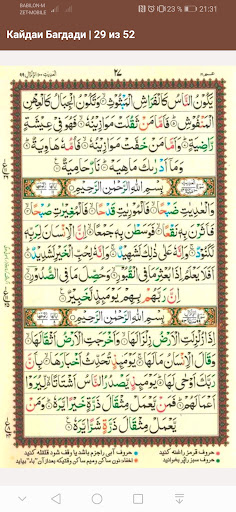 BABILON-M
ZET-MOBILE
123 %
21:31
Кайдаи Багдади | 29 из 52
٢٧
يَكُونُ النَّاسُ كَالْفَرَاشِ الْمَبْثُوثِ وَتَكُونُ الْجِبَالُ كَالْعِهْنِ
الْمَنْفُوشِ فَأَمَّا مَنْ ثَقُلَتْ مَوَازِينُهُ فَهُوَ فِي عِيشَةٍ
رَاضِيَةٍ وَأَمَّا مَنْ خَفَّتْ مَوَازِينُهُ فَأُمُّهُ هَاوِيَةٌ
وَمَا أَدْرٰىكَ مَاهِيَهْ نَارٌ حَامِيَةٌ
بِسْمِ اللّٰهِ الرَّحْمٰنِ الرَّحِيمِ
وَالْعٰدِيٰتِ ضَبْحًا فَالْمُورِيٰتِ قَدْحًا فَالْمُغِيرٰتِ صُبْحًا
فَأَثَرْنَ بِهِ نَقْعًا فَوَسَطْنَ بِهِ جَمْعًا إِنَّ الْإِنْسَانَ لِرَبِّهِ
لَكَنُودٌ وَإِنَّهُ عَلٰى ذٰلِكَ لَشَهِيدٌ وَإِنَّهُ لِحُبِّ الْخَيْرِ لَشَدِيدٌ
أَفَلَا يَعْلَمُ إِذَا بُعْثِرَ مَا فِي الْقُبُورِ وَحُصِّلَ مَا فِي الصُّدُورِ
إِنَّ رَبَّهُمْ بِهِمْ يَوْمَئِذٍ لَخَبِيرٌ
بِسْمِ اللّٰهِ الرَّحْمٰنِ الرَّحِيمِ
إِذَا زُلْزِلَتِ الْأَرْضُ زِلْزَالَهَا وَأَخْرَجَتِ الْأَرْضُ أَثْقَالَهَا
وَقَالَ الْإِنْسَانُ مَا لَهَا يَوْمَئِذٍ تُحَدِّثُ أَخْبَارَهَا بِأَنَّ
رَبَّكَ أَوْحٰى لَهَا يَوْمَئِذٍ يَصْدُرُ النَّاسُ أَشْتَاتًا لِيُرَوْا
أَعْمَالَهُمْ فَمَنْ يَعْمَلْ مِثْقَالَ ذَرَّةٍ خَيْرًا يَرَهُ وَمَنْ
يَعْمَلْ مِثْقَالَ ذَرَّةٍ شَرًّا يَرَهُ
حروف قرمز راغنه کنید
حروف آبی راجزم باشد یا وقف شود قلقله کنید
حروف سبز را پر بخوانید